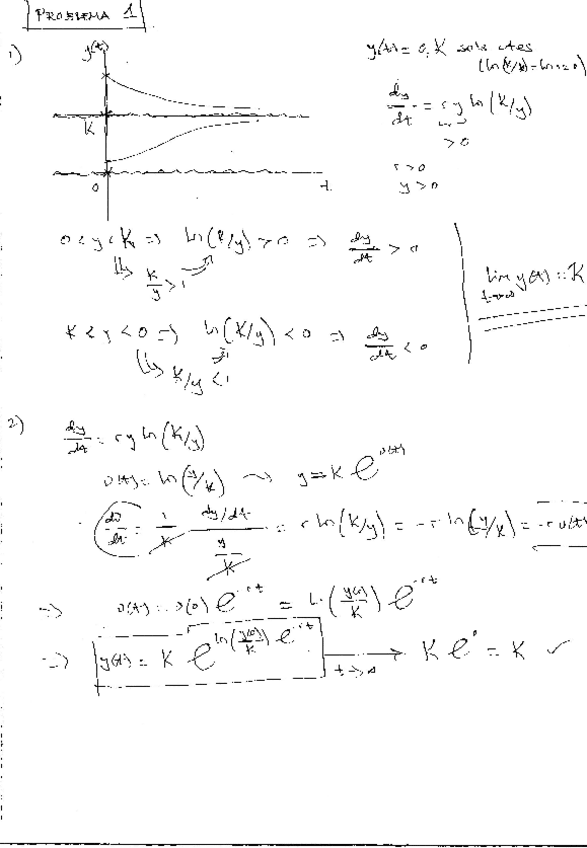 PROBLEMA 1
1)
y(t)
K
0
t
y(t) = 0, K sols ctes
(ln(K/K) = ln 1 = 0)
dy/dt = r y ln(K/y)
> 0
r > 0
y > 0
0 < y < K => ln(K/y) > 0 => dy/dt > 0
K/y > 1
lim y(t) = K
t→∞
K < y < 0 => ln(K/y) < 0 => dy/dt < 0
K/y < 1
2)
dy/dt = r y ln(K/y)
v(t) = ln(y/K) ~> y = K e^v(t)
dv/dt = 1/K (dy/dt)/(y/K) = r ln(K/y) = -r ln(y/K) = -r v(t)
=> v(t) = v(0) e^-rt = ln(y(0)/K) e^-rt
=> y(t) = K e^(ln(y(0)/K) e^-rt) → t→∞ K e^0 = K ✓